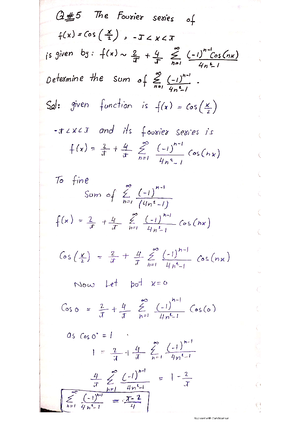 Q#5 The Fourier series of
f(x) = Cos(x/2), -π < x < π
is given by: f(x) ~ 2/π + 4/π ∑_{n=1}^{∞} (-1)^{n-1} Cos(nx) / 4n²-1
Determine the sum of ∑_{n=1}^{∞} (-1)^{n-1} / 4n²-1 .
Sol: given function is f(x) = Cos(x/2)
-π < x < π and its fourier series is
f(x) = 2/π + 4/π ∑_{n=1}^{∞} (-1)^{n-1} / 4n²-1 Cos(nx)
To fine
Sum of ∑_{n=1}^{∞} (-1)^{n-1} / (4n²-1)
f(x) = 2/π + 4/π ∑_{n=1}^{∞} (-1)^{n-1} / 4n²-1 Cos(nx)
Cos(x/2) = 2/π + 4/π ∑_{n=1}^{∞} (-1)^{n-1} / 4n²-1 Cos(nx)
Now Let put x=0
Cos0 = 2/π + 4/π ∑_{n=1}^{∞} (-1)^{n-1} / 4n²-1 Cos(0)
as Cos0° = 1
1 = 2/π + 4/π ∑_{n=1}^{∞} (-1)^{n-1} / 4n²-1
4/π ∑_{n=1}^{∞} (-1)^{n-1} / 4n²-1 = 1 - 2/π
∑_{n=1}^{∞} (-1)^{n-1} / 4n²-1 = π-2 / 4
Scanned with CamScanner